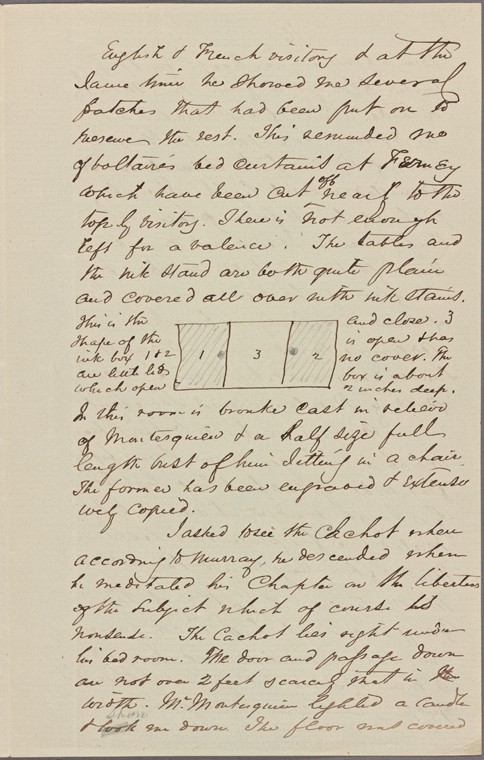 English & French visitors & at the
same time he showed me several
patches that had been put on to
preserve the rest. This reminded me
of Voltaire's bed curtains at Ferney
which have been cut off nearly to the
top by visitors. There is not enough
left for a valence. The tables and
the ink stand are both quite plain
and covered all over with ink stains.
This is the
shape of the
ink box 1 & 2
are little lids
which open
1 3 2
and close. 3
is open & has
no cover. The
box is about
2 inches deep.
In this room is bronze cast in relievo
of Montesquieu & a half size full
length bust of him sitting in a chair.
The former has been engraved & extensi
vely copied.
I asked to see the Cachot where
according to Murray, he descended when
he meditated his Chapter on the liberties
of the Subject which of course is
nonsense. The Cachot lies right under
his bed room. The door and passage down
are not over 2 feet scarcely that in
width. Mr. Montesquieu lighted a candle
& me down. The floor was covered